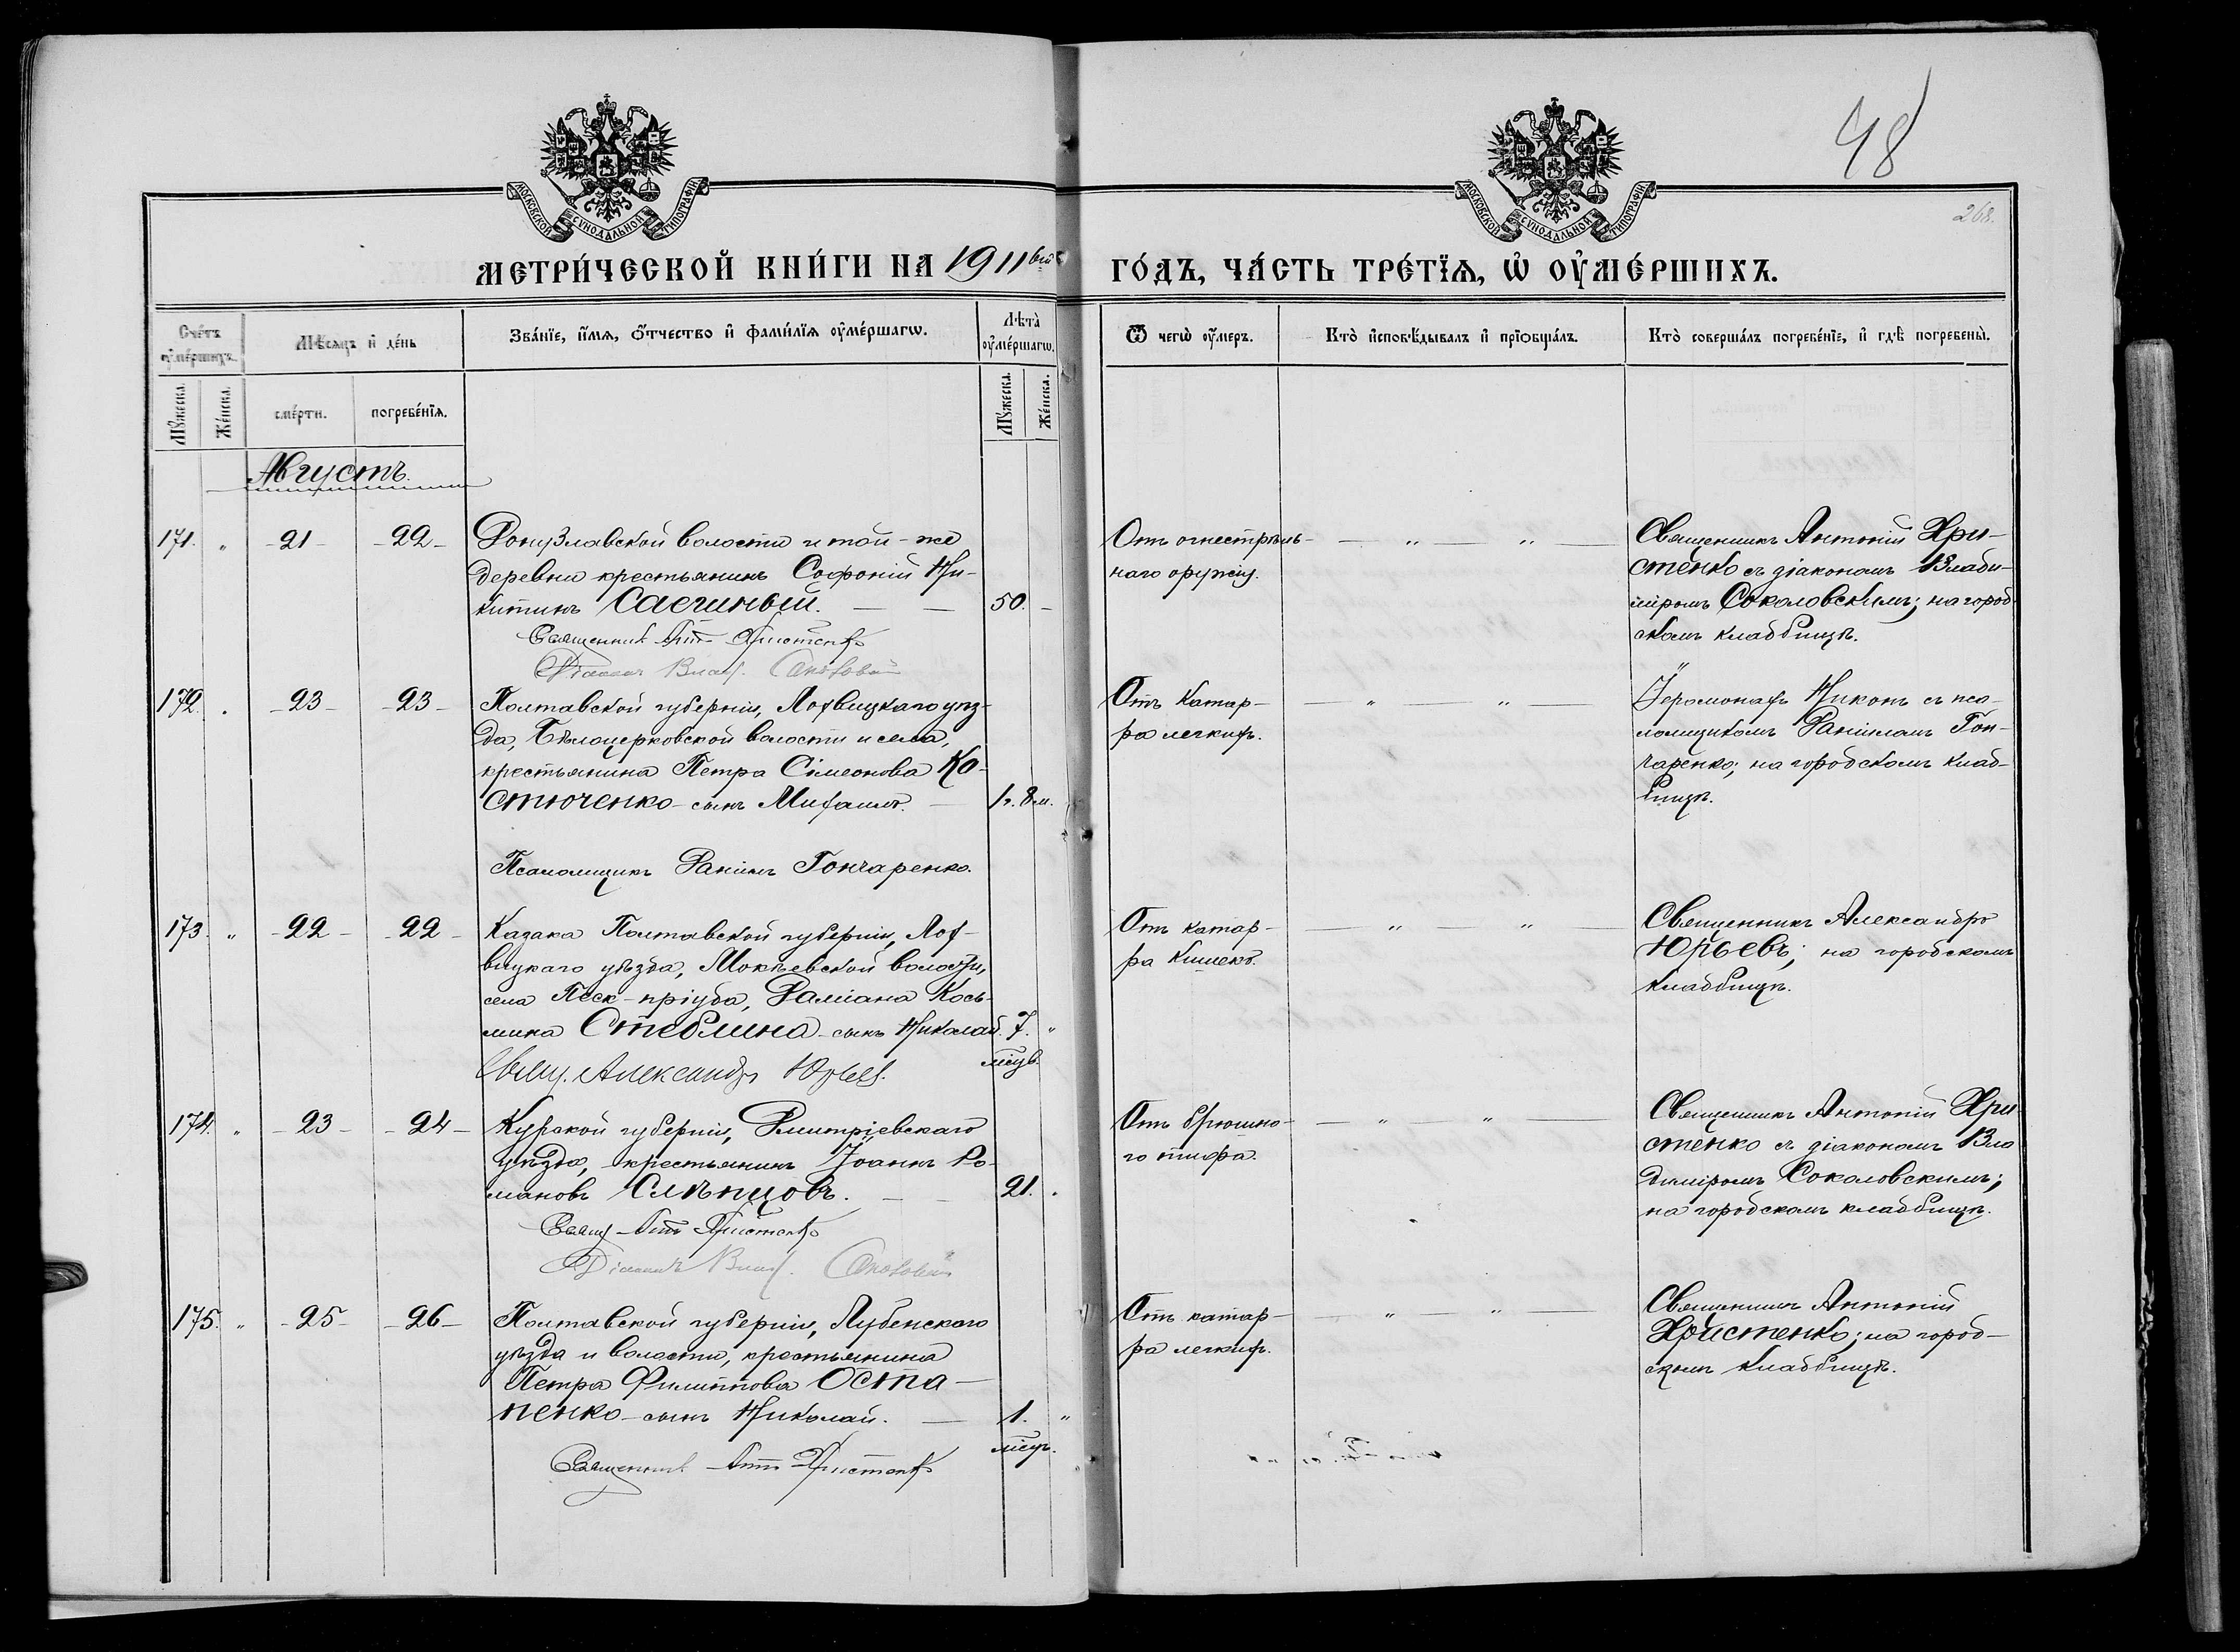 48
268.
МОСКОВСКОЙ СѴНОДАЛЬНОЙ ТИПОГРАФІИ
МОСКОВСКОЙ СѴНОДАЛЬНОЙ ТИПОГРАФІИ
МЕТРИ́ЧЕСКОЙ КНИ́ГИ НА 1911
ГО́ДЪ, ЧА́СТЬ ТРЕ́ТЇѦ, Ѡ ОУ҆МЕ́РШИХЪ.
Сче́тъ оу҆ме́ршихъ.
Мѣ́сяцъ и҆ де́нь
Зва́нїе, и҆́мѧ, ѻ҆́тчество и҆ фами́лїѧ оу҆ме́ршагѡ.
Лѣта̀ оу҆ме́ршагѡ.
Ѿ чегѡ̀ оу҆́меръ.
Кто̀ и҆сповѣ́дывалъ и҆ прїѻбща́лъ.
Кто̀ соверша́лъ погребе́нїе, и҆ гдѣ̀ погребены̀.
Мꙋ́жеска.
Же́нска.
сме́рти.
погребе́нїѧ.
Мꙋ́жеска.
Же́нска.
Августъ.
171. " -21- -22- Донузлавской волости и той-же
деревни крестьянинъ Софоній Ни-
китинъ Саегиный. — — 50. -
Священникъ Ант. Христенко
Діаконъ Влад. Соколовскій
Отъ огнестрѣль-
наго оружія.
— " — " —
Священникъ Антоній Хри-
стенко съ діакономъ Влади-
міромъ Соколовскимъ; на город-
скомъ кладбищѣ.
172. . -23- -23- Полтавской губерніи, Лохвицкаго уѣз-
да, Бѣлоцерковской волости и села,
крестьянина Петра Сімеонова Ко-
стюченко - сынъ Михаилъ. — 1г. 8м.
Псаломщикъ Даніилъ Гончаренко.
Отъ катар-
ра легкихъ.
— " — " —
Іеромонахъ Никонъ съ пса-
ломщикомъ Даніиломъ Гон-
чаренко; на городскомъ клад-
бищѣ.
173. " -22- -22- Казака Полтавской губерніи, Лох-
вицкаго уѣзда, Мокіевской волости,
села Песк-пріуба, Даміана Кось-
мина Стеблина - сынъ Николай. 7. "
мсцв.
Свящ. Александръ Юрьев.
Отъ катар-
ра кишекъ.
— " — " —
Священникъ Александръ
Юрьевъ; на городскомъ
кладбищѣ.
174. " -23- -24- Курской губерніи, Дмитріевскаго
уѣзда, крестьянинъ Іоаннъ Ро-
мановъ Слѣпцовъ. — — 21. .
Свящ. Ант Христенко
Діаконъ Влад. Соколовскій
Отъ брюшно-
го тифа.
— " — " —
Священникъ Антоній Хри-
стенко съ діакономъ Вла
диміромъ Соколовскимъ;
на городскомъ кладбищѣ.
175. " -25- -26- Полтавской губерніи, Лубенскаго
уѣзда и волости, крестьянина
Петра Филиппова Оста-
пенко - сынъ Николай. — 1. "
мсцъ.
Священникъ Ант Христенко
Отъ катар-
ра легкихъ.
— " — " —
Священникъ Антоній
Христенко; на город-
скомъ кладбищѣ.